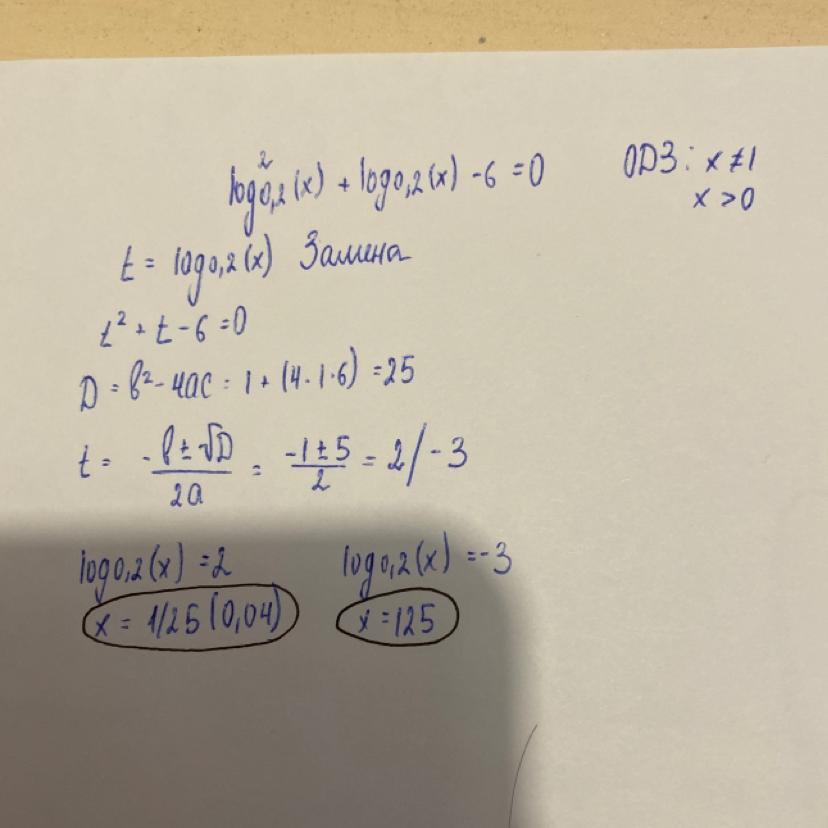 log²0,2(x) + log0,2(x) - 6 = 0
ОДЗ: x ≠ 1
x > 0
t = log0,2(x) Замена
t² + t - 6 = 0
D = b² - 4ac = 1 + (4·1·6) = 25
t = -b ± √D / 2a = -1 ± 5 / 2 = 2 / -3
log0,2(x) = 2 log0,2(x) = -3
x = 1/25 (0,04) x = 125